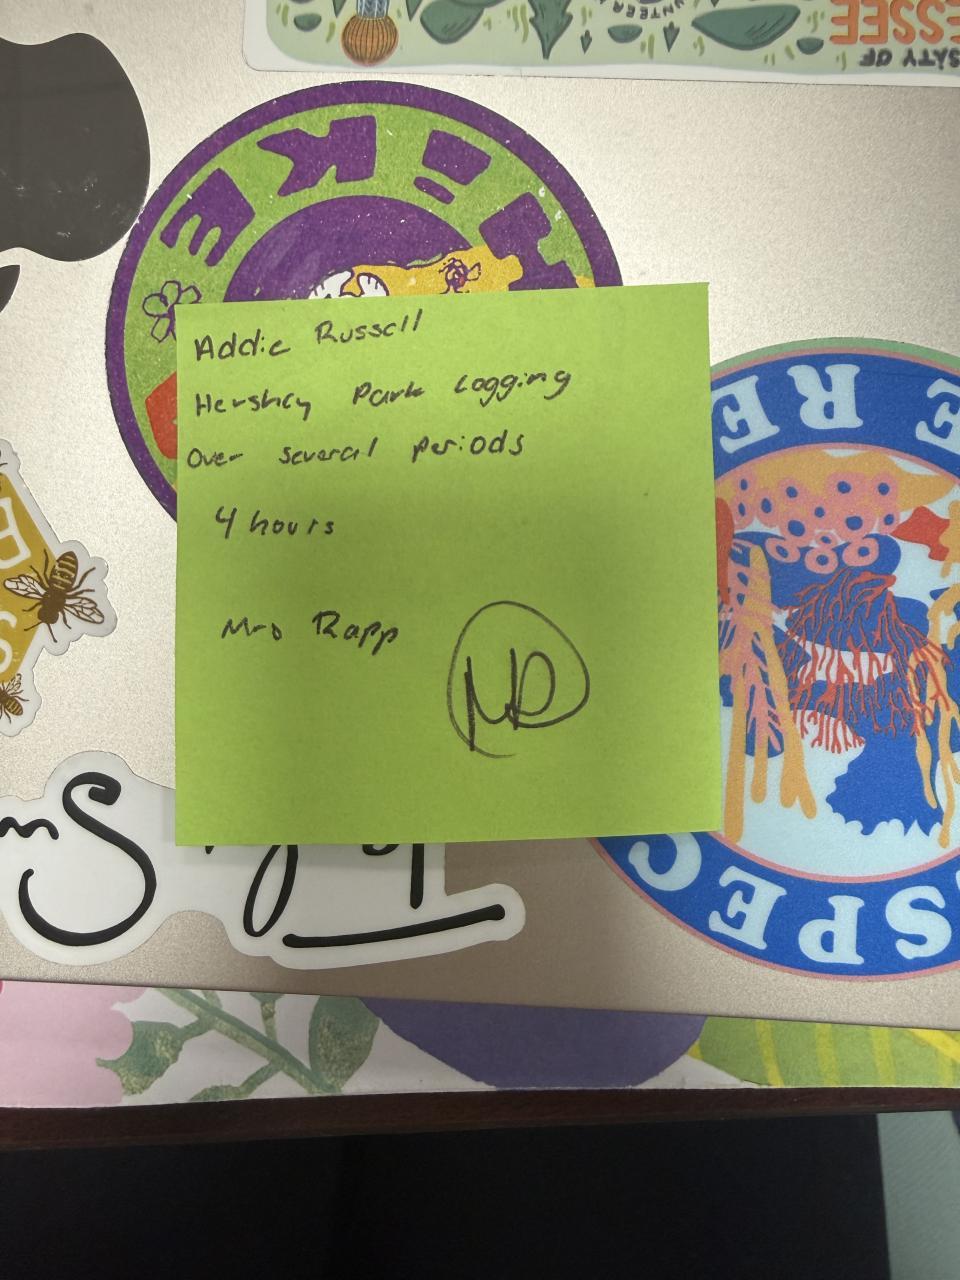 ESSEE
SATY OF
UNTEER
HIKE
Addie Russell
Hershey Park Logging
Over several periods
4 hours
Mrs Rapp
MR
E RE
SPEC